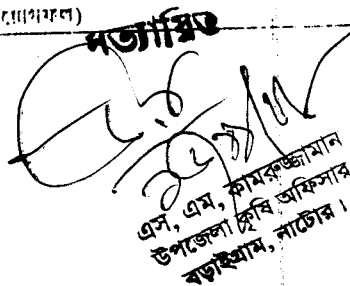 য়োগফল)
সত্যায়িত
এস, এম, কামরুজ্জামান
উপজেলা কৃষি অফিসার
বড়াইগ্রাম, নাটোর।